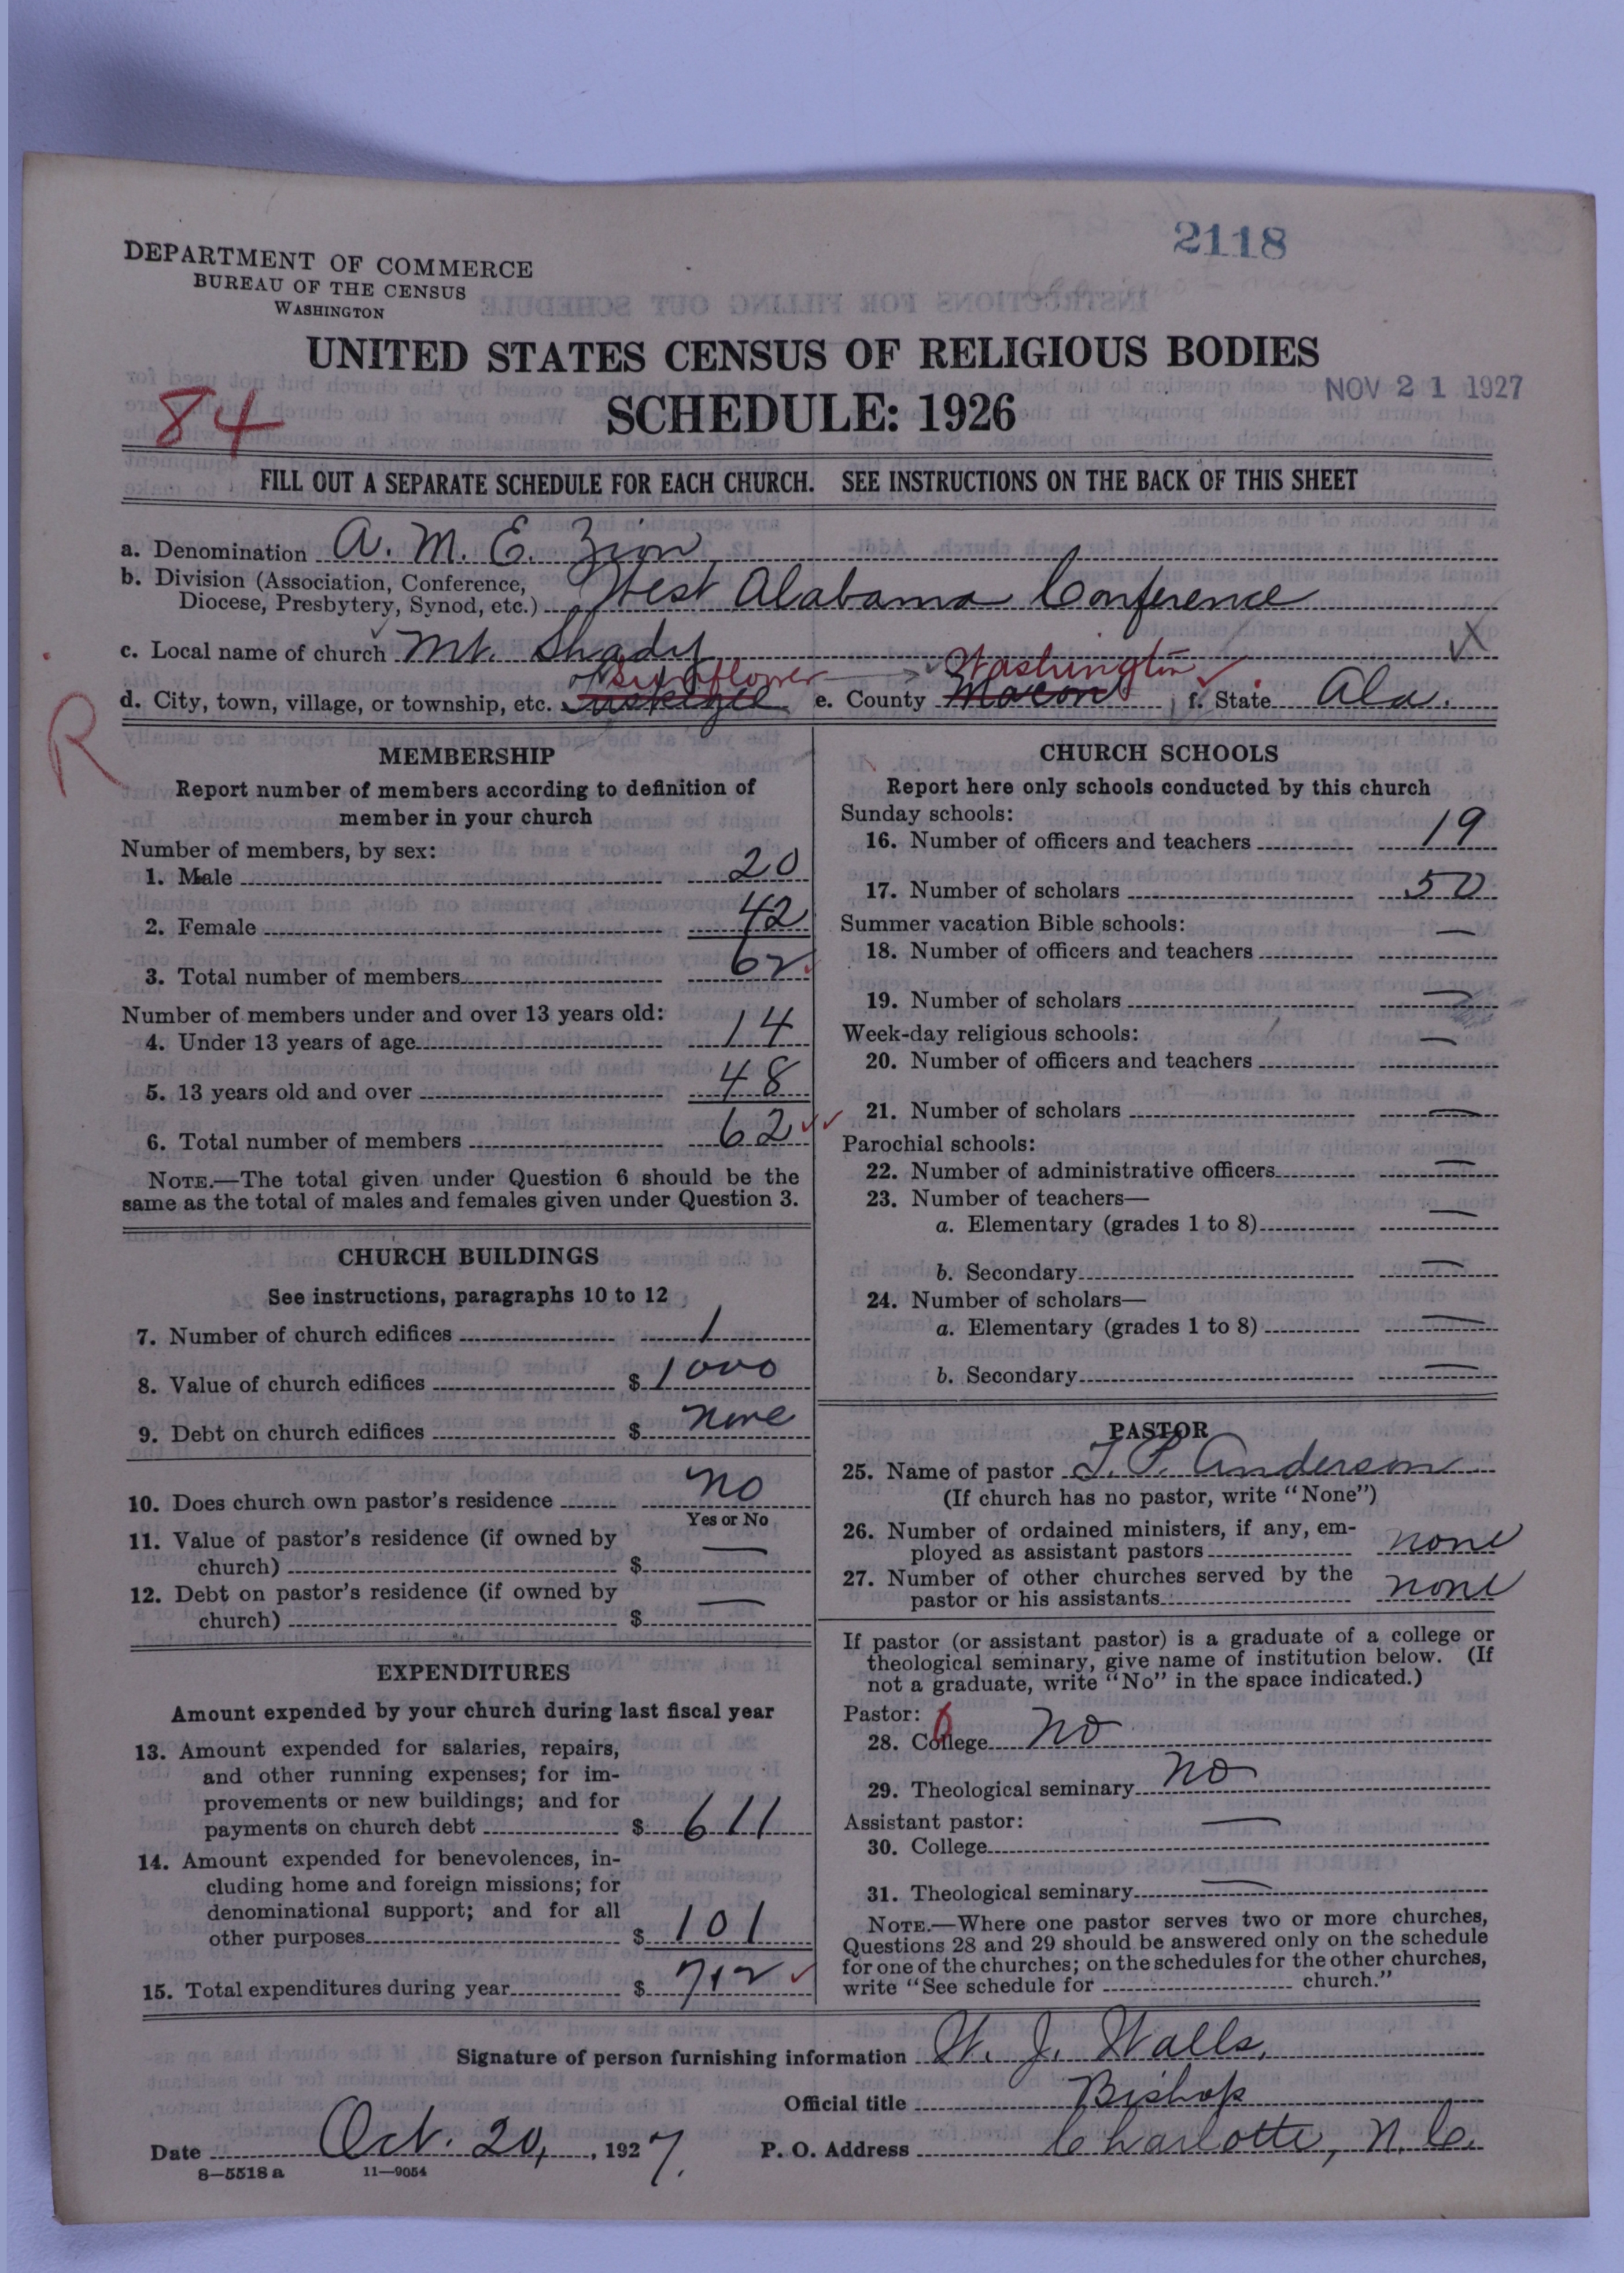 2118
DEPARTMENT OF COMMERCE
BUREAU OF THE CENSUS
WASHINGTON
UNITED STATES CENSUS OF RELIGIOUS BODIES
NOV 21 1927
84
SCHEDULE: 1926
FILL OUT A SEPARATE SCHEDULE FOR EACH CHURCH. SEE INSTRUCTIONS ON THE BACK OF THIS SHEET
a. Denomination A. M. E. Zion
b. Division (Association, Conference, Diocese, Presbytery, Synod, etc.) West Alabama Conference
c. Local name of church Mt. Shady X
Sunflower Washington
d. City, town, village, or township, etc. Tuskegee e. County Macon f. State Ala.
R
MEMBERSHIP
Report number of members according to definition of
member in your church
Number of members, by sex:
1. Male 20
2. Female 42
3. Total number of members 62
Number of members under and over 13 years old:
4. Under 13 years of age 14
5. 13 years old and over 48
6. Total number of members 62
NOTE.—The total given under Question 6 should be the
same as the total of males and females given under Question 3.
CHURCH BUILDINGS
See instructions, paragraphs 10 to 12
7. Number of church edifices 1
8. Value of church edifices $ 1000
9. Debt on church edifices $ none
10. Does church own pastor's residence No
Yes or No
11. Value of pastor's residence (if owned by
church) $ —
12. Debt on pastor's residence (if owned by
church) $ —
EXPENDITURES
Amount expended by your church during last fiscal year
13. Amount expended for salaries, repairs,
and other running expenses; for im-
provements or new buildings; and for
payments on church debt $ 611
14. Amount expended for benevolences, in-
cluding home and foreign missions; for
denominational support; and for all
other purposes $ 101
15. Total expenditures during year $ 712
CHURCH SCHOOLS
Report here only schools conducted by this church
Sunday schools:
16. Number of officers and teachers 19
17. Number of scholars 50
Summer vacation Bible schools:
18. Number of officers and teachers —
19. Number of scholars —
Week-day religious schools:
20. Number of officers and teachers —
21. Number of scholars —
Parochial schools:
22. Number of administrative officers —
23. Number of teachers—
a. Elementary (grades 1 to 8) —
b. Secondary —
24. Number of scholars—
a. Elementary (grades 1 to 8) —
b. Secondary —
PASTOR
25. Name of pastor T. P. Anderson
(If church has no pastor, write "None")
26. Number of ordained ministers, if any, em-
ployed as assistant pastors none
27. Number of other churches served by the
pastor or his assistants none
If pastor (or assistant pastor) is a graduate of a college or
theological seminary, give name of institution below. (If
not a graduate, write "No" in the space indicated.)
Pastor:
28. College No
29. Theological seminary No
Assistant pastor:
30. College —
31. Theological seminary —
NOTE.—Where one pastor serves two or more churches,
Questions 28 and 29 should be answered only on the schedule
for one of the churches; on the schedules for the other churches,
write "See schedule for church."
Signature of person furnishing information W. J. Walls,
Official title Bishop
Date Oct. 20, 1927. P. O. Address Charlotte, N. C.
8—5518 a 11—9054